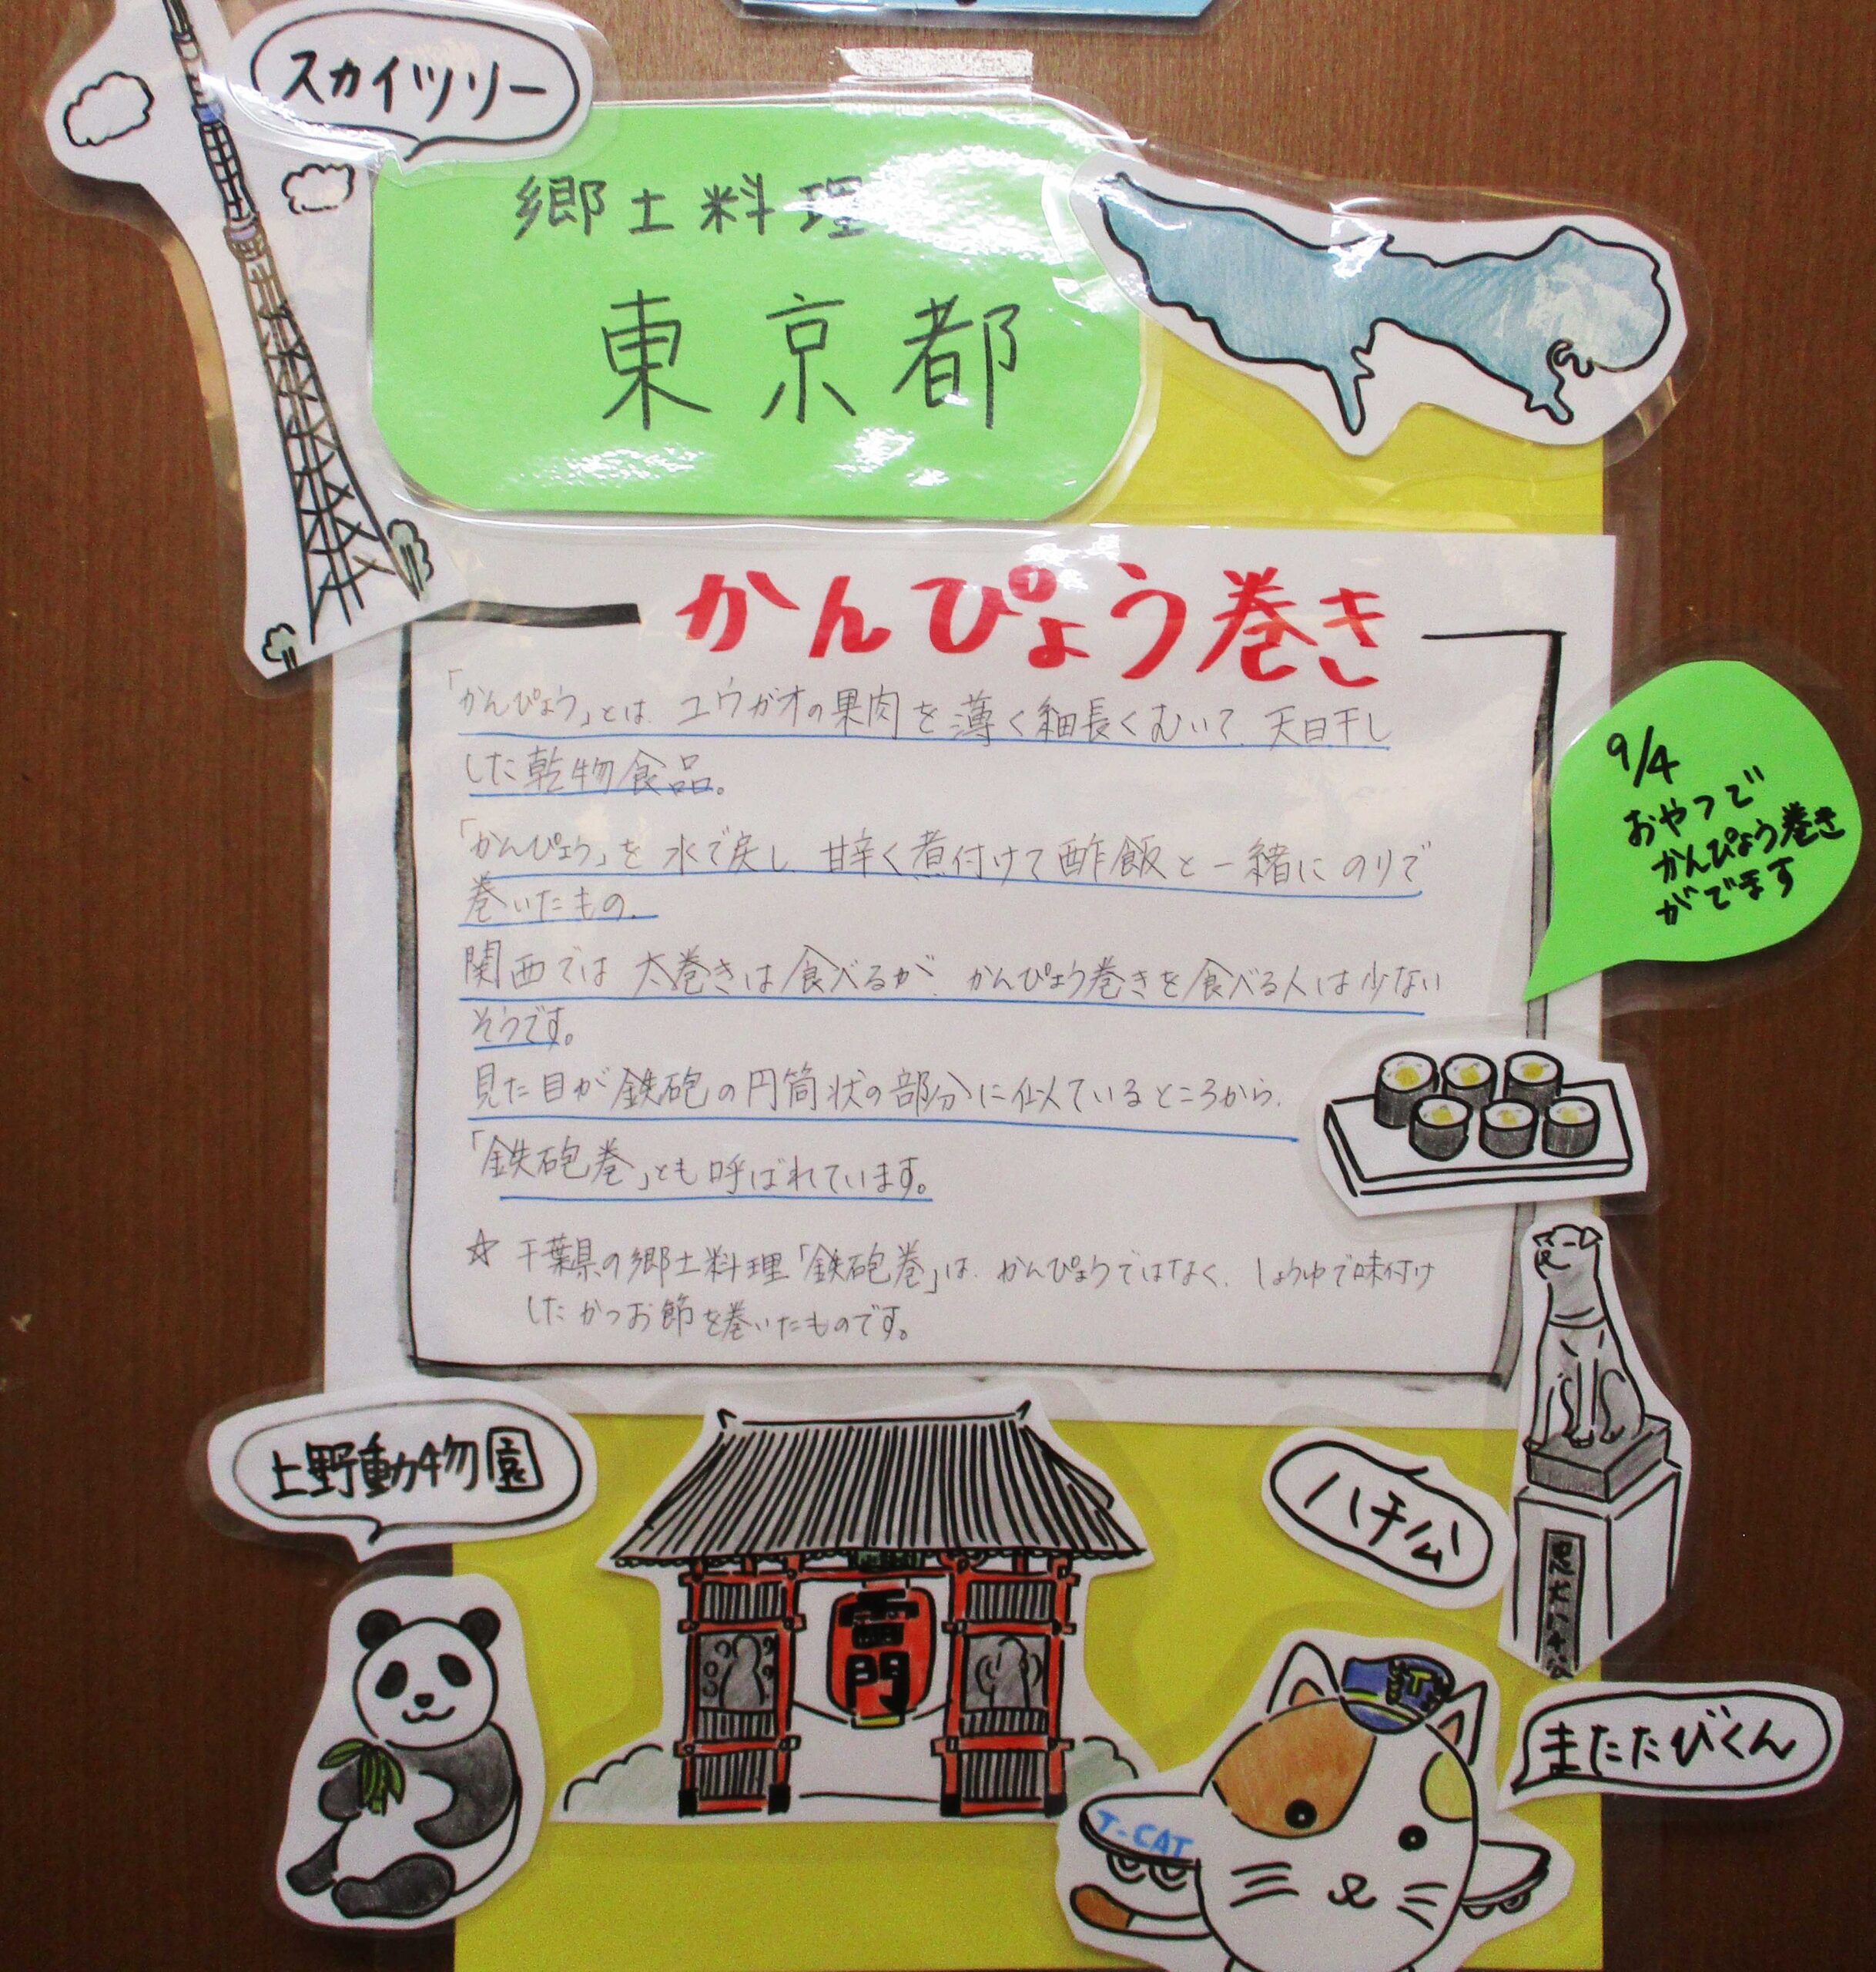 スカイツリー
郷土料理
東京都
かんぴょう巻き
「かんぴょう」とは、ユウガオの果肉を薄く細長くむいて、天日干し
した乾物食品。
「かんぴょう」を水で戻し、甘辛く煮付けて酢飯と一緒にのりで
巻いたもの。
関西では太巻きは食べるが、かんぴょう巻きを食べる人は少ない
そうです。
見た目が鉄砲の円筒状の部分に似ているところから、
「鉄砲巻」とも呼ばれています。
☆千葉県の郷土料理「鉄砲巻」は、かんぴょうではなく、しょうゆで味付け
したかつお節を巻いたものです。
9/4
おやつで
かんぴょう巻き
がでます
上野動物園
雷門
ハチ公
忠犬ハチ公
またたびくん
T
T-CAT